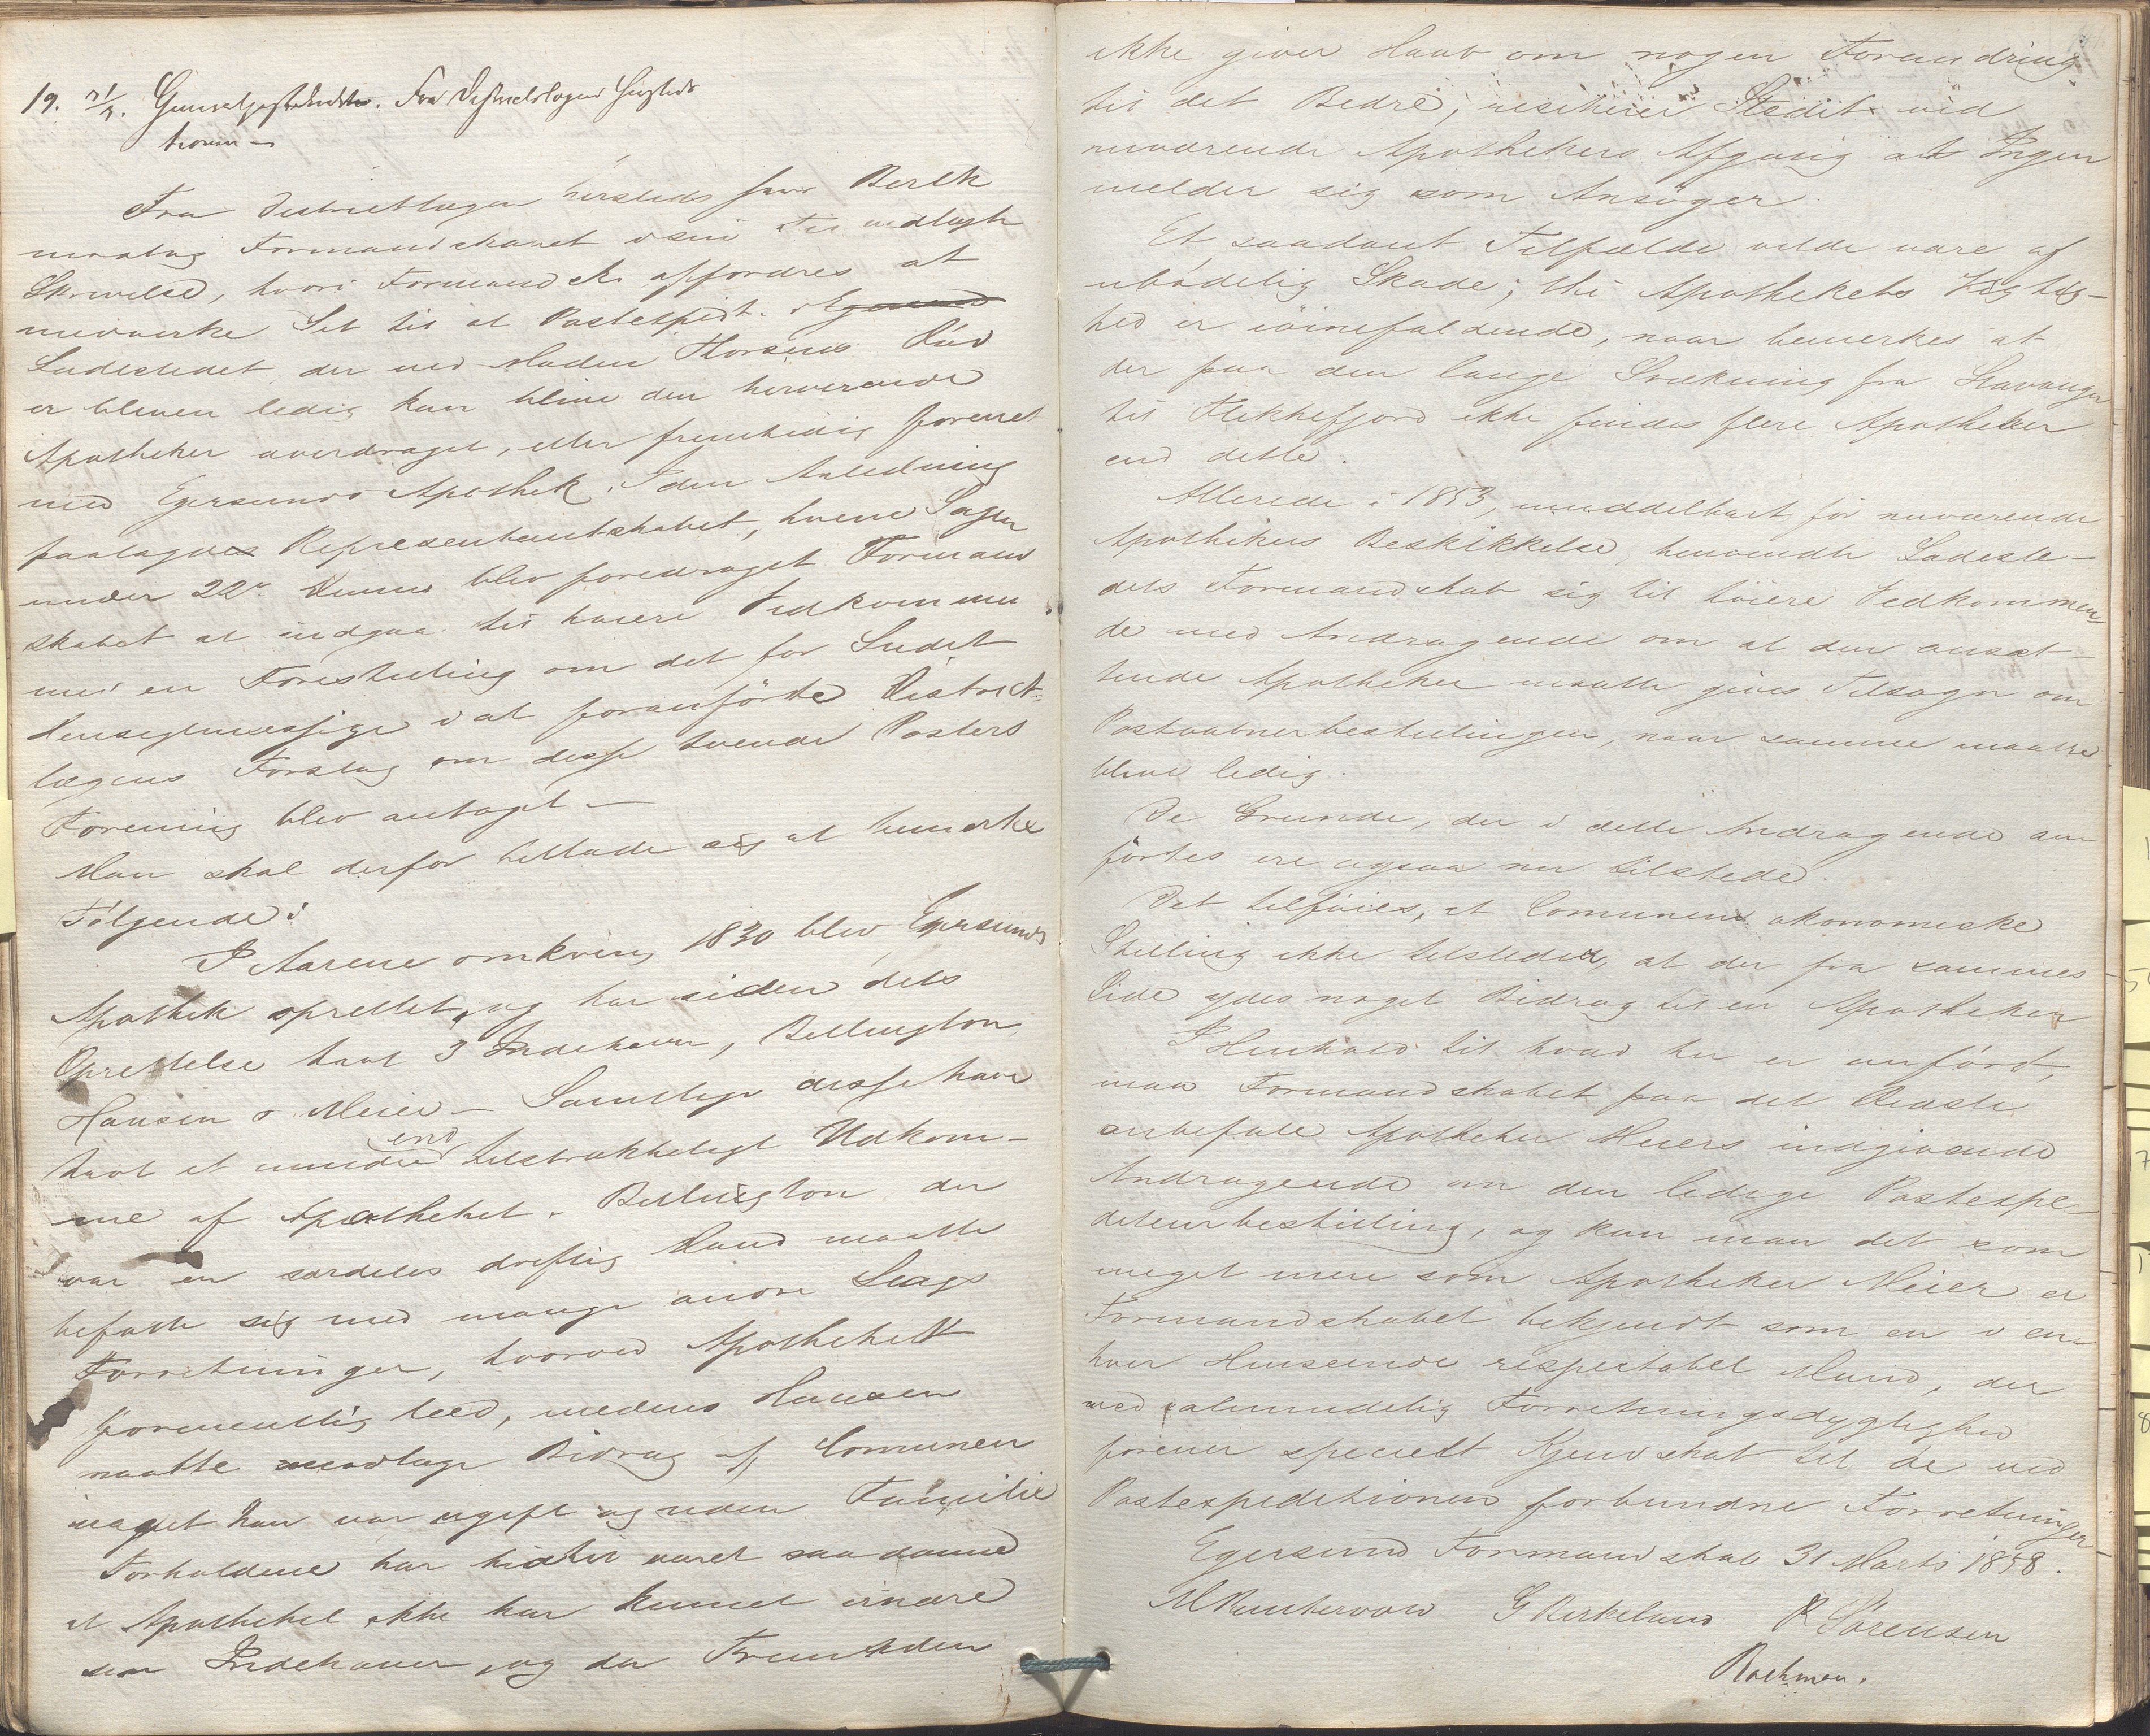 19. 31/3. Fra Districtslægen
Fra Districtlægen hersteds
modtog Formandskabet i sin Tid indlagte
Skrivelse, hvori Formandsk. opfordres at
medvirke Sit til at Postexpedt. i Egersund
Ladestedet, der ved Madm Thorsens Død
er bleven ledig kan blive den herværende
Apotheker overdraget, eller fremtidig forenet
med Egersunds Apothek. I den Anledning
paalagdes Repræsentantskabet, hvem Sagen
under 22de Dennes blev foredraget Formand
skabet at indgaa til høiere Vedkommen
med en Forestilling om det for Stedet
Hensigtsmæssige i at foranførte District-
lægens Forslag om disse tvende Posters
Forening blev antaget –
Man skal derfor tillade sig at bemærke
Følgende:
I Aarene omkring 1830 blev Egersunds
Apothek oprettet, og har siden dets
Oprettelse havt 3 Indehavere, Bellington,
Hansen o Meier – Samtlige disse have
havt et mindre end tilstrækkeligt Udkom-
me af Apotheket. Bellington der
var en særdeles driftig Mand maatte
befatte sig med mange andre Slags
Forretninger, hvorved Apotheket
formentlig leed, medens Hansen
maatte modtage Bidrag af Comunen
uagtet han var ugift og uden Familie
Forholdene har hidtil været saadanne
at Apotheket ikke har kunnet ernære
sin Indehaver, og da Fremtiden
ikke giver Haab om nogen Forandring
til det Bedre, risikerer Stedet ved
nuværende Apothekers Afgang at Ingen
melder sig som Ansøger.
Et saadant Tilfælde vilde være af
ubødelig Skade; thi Apothekets Vigtig-
hed er iøinefaldende, naar bemærkes at
der paa den lange Strækning fra Stavanger
til Flekkefjord ikke findes flere Apotheker
end dette.
Allerede i 1853, umiddelbart før nuværende
Apothekers Beskikkelse, henvendte Ladeste-
dets Formandskab sig til høiere Vedkommen-
de med Andragende om at den ansæt-
tende Apotheker maatte gives Tilsagn om
Postaabnerbestillingen, naar samme maatte
blive ledig.
De Grunde, der i dette Andragende an-
førtes ere ogsaa nu tilstede.
Det tilføies, at Comunens økonomiske
Stilling ikke tilsteder, at der fra sammes
Side ydes noget Bidrag til en Apotheker
I Henhold til hvad her er anført,
maa Formandskabet paa det Bedste
anbefale Apotheker Meiers indgivende
Andragende om den ledige Postexpe-
diteurbestilling, og kan man det saa
meget mere som Apotheker Meier er
Formandskabet bekjendt som en i en-
hver Henseende respectabel Mand, der
med almindelig Forretningsdygtighed
forener specielt Kjendskab til de ved
Postexpeditionen forbundne Forretninger
Egersund Formandskab 31 Marts 1858.
M Puntervold G Birkeland P Sørensen